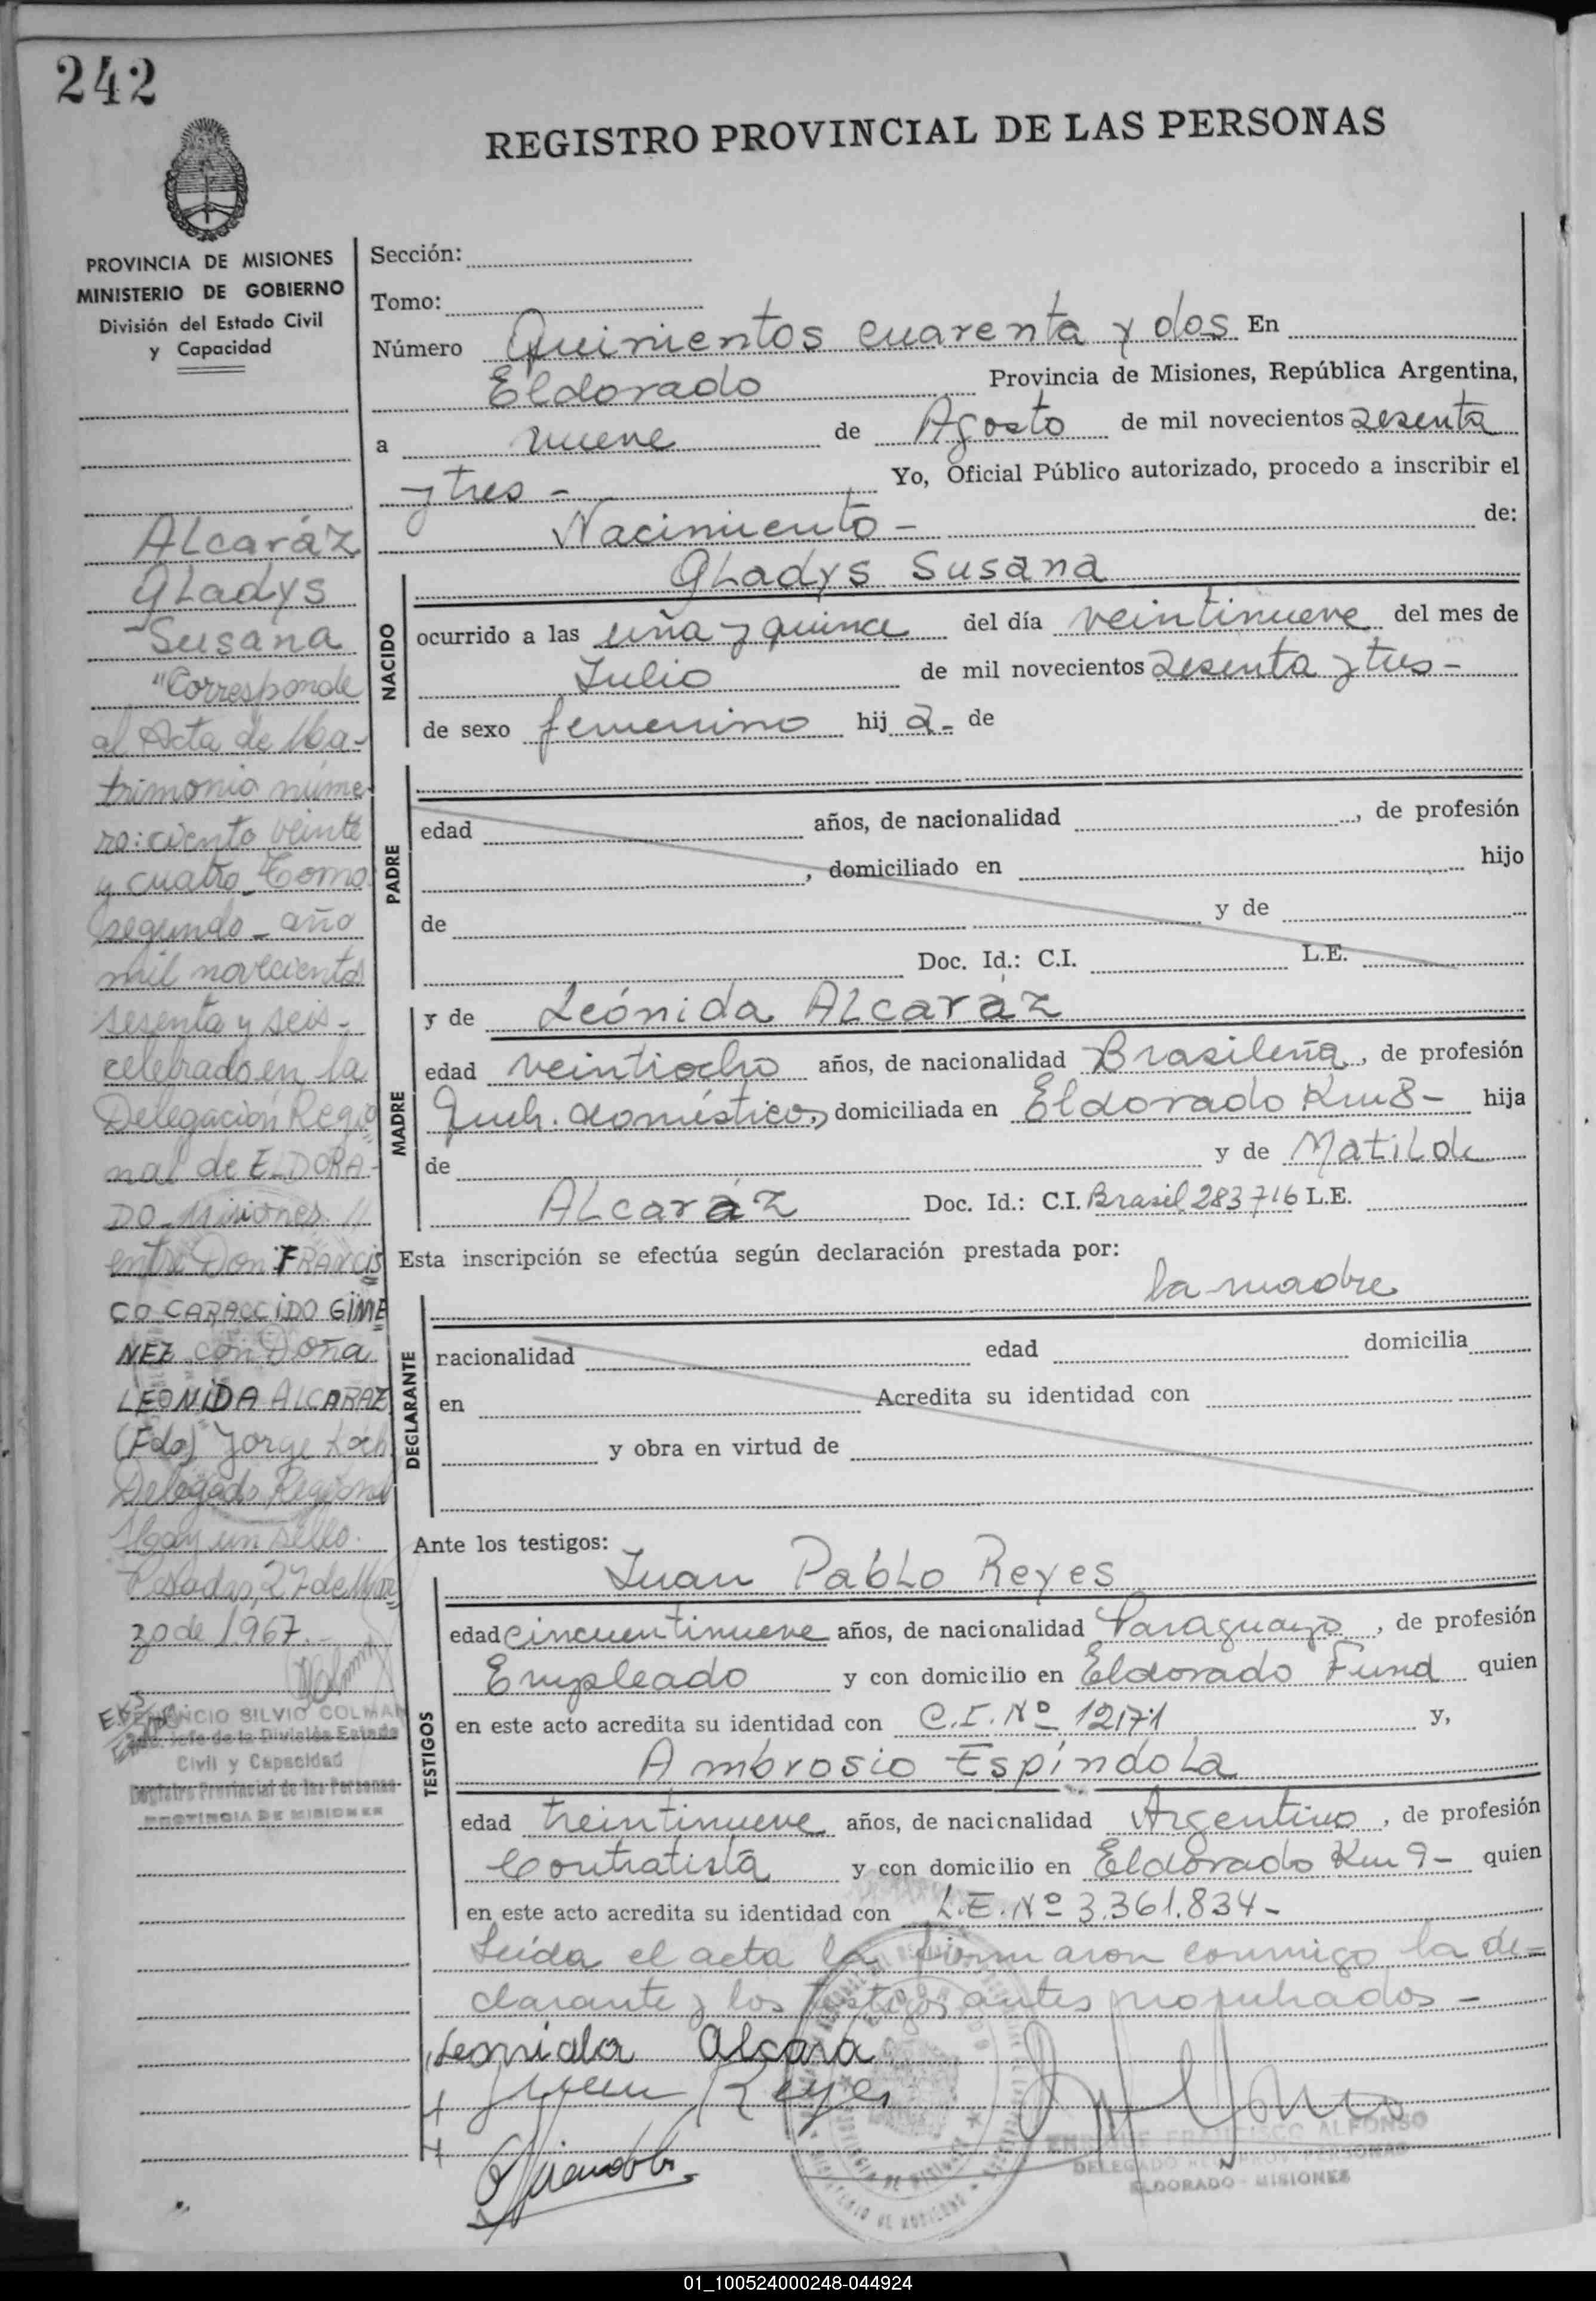 242
REGISTRO PROVINCIAL DE LAS PERSONAS
PROVINCIA DE MISIONES
MINISTERIO DE GOBIERNO
División del Estado Civil
y Capacidad
Alcaráz
Gladys
Susana
"Corresponde
al Acta de Ma-
trimonio núme
ro: ciento veinte
y cuatro_Tomo
segundo_año
mil novecientos
sesenta y seis-
celebrado en la
Delegación Regio
nal de ELDORA-
DO_Misiones
entre Don FRANCIS
CO CARACCIDO GIME
NEZ con Doña
LEONIDA ALCARAZ
(Fdo) Jorge Koch
Delegado Regional
Hay un sello.
Posadas, 27 de Mar
zo de 1967.-
SILVIO COLMAN
Jefe de la División Estado
Civil y Capacidad
Registro Provincial de las Personas
PROVINCIA DE MISIONES
Sección:
Tomo:
Número Quinientos cuarenta y dos En
Eldorado Provincia de Misiones, República Argentina,
a nueve de Agosto de mil novecientos sesenta
y tres - Yo, Oficial Público autorizado, procedo a inscribir el
Nacimiento - de:
Gladys Susana
NACIDO
ocurrido a las uña y quince del día veintinueve del mes de
Julio de mil novecientos sesenta y tres -
de sexo femenino hij a- de
PADRE
edad años, de nacionalidad , de profesión
, domiciliado en hijo
de y de
Doc. Id.: C.I. L.E.
MADRE
y de Leónida Alcaráz
edad veintiocho años, de nacionalidad Brasileña, de profesión
Queh. domésticos, domiciliada en Eldorado Km 8 - hija
de y de Matilde
Alcaráz Doc. Id.: C.I. Brasil 283716 L.E.
Esta inscripción se efectúa según declaración prestada por:
la madre
DECLARANTE
nacionalidad edad domicilia
en Acredita su identidad con
y obra en virtud de
Ante los testigos:
Juan Pablo Reyes
TESTIGOS
edad cincuentinueve años, de nacionalidad Paraguayo, de profesión
Empleado y con domicilio en Eldorado Fund quien
en este acto acredita su identidad con C.I. Nº 12171 y,
Ambrosio Espíndola
edad treintinueve años, de nacionalidad Argentino, de profesión
Contratista y con domicilio en Eldorado Km 9 - quien
en este acto acredita su identidad con L.E. Nº 3.361.834 -
Leída el acta la firmaron conmigo la de-
clarante y los testigos antes
Leonida Alcara
Juan Reyes
FRANCISCO ALFONSO
DELEGADO
ELDORADO - MISIONES
01_100524000248-044924